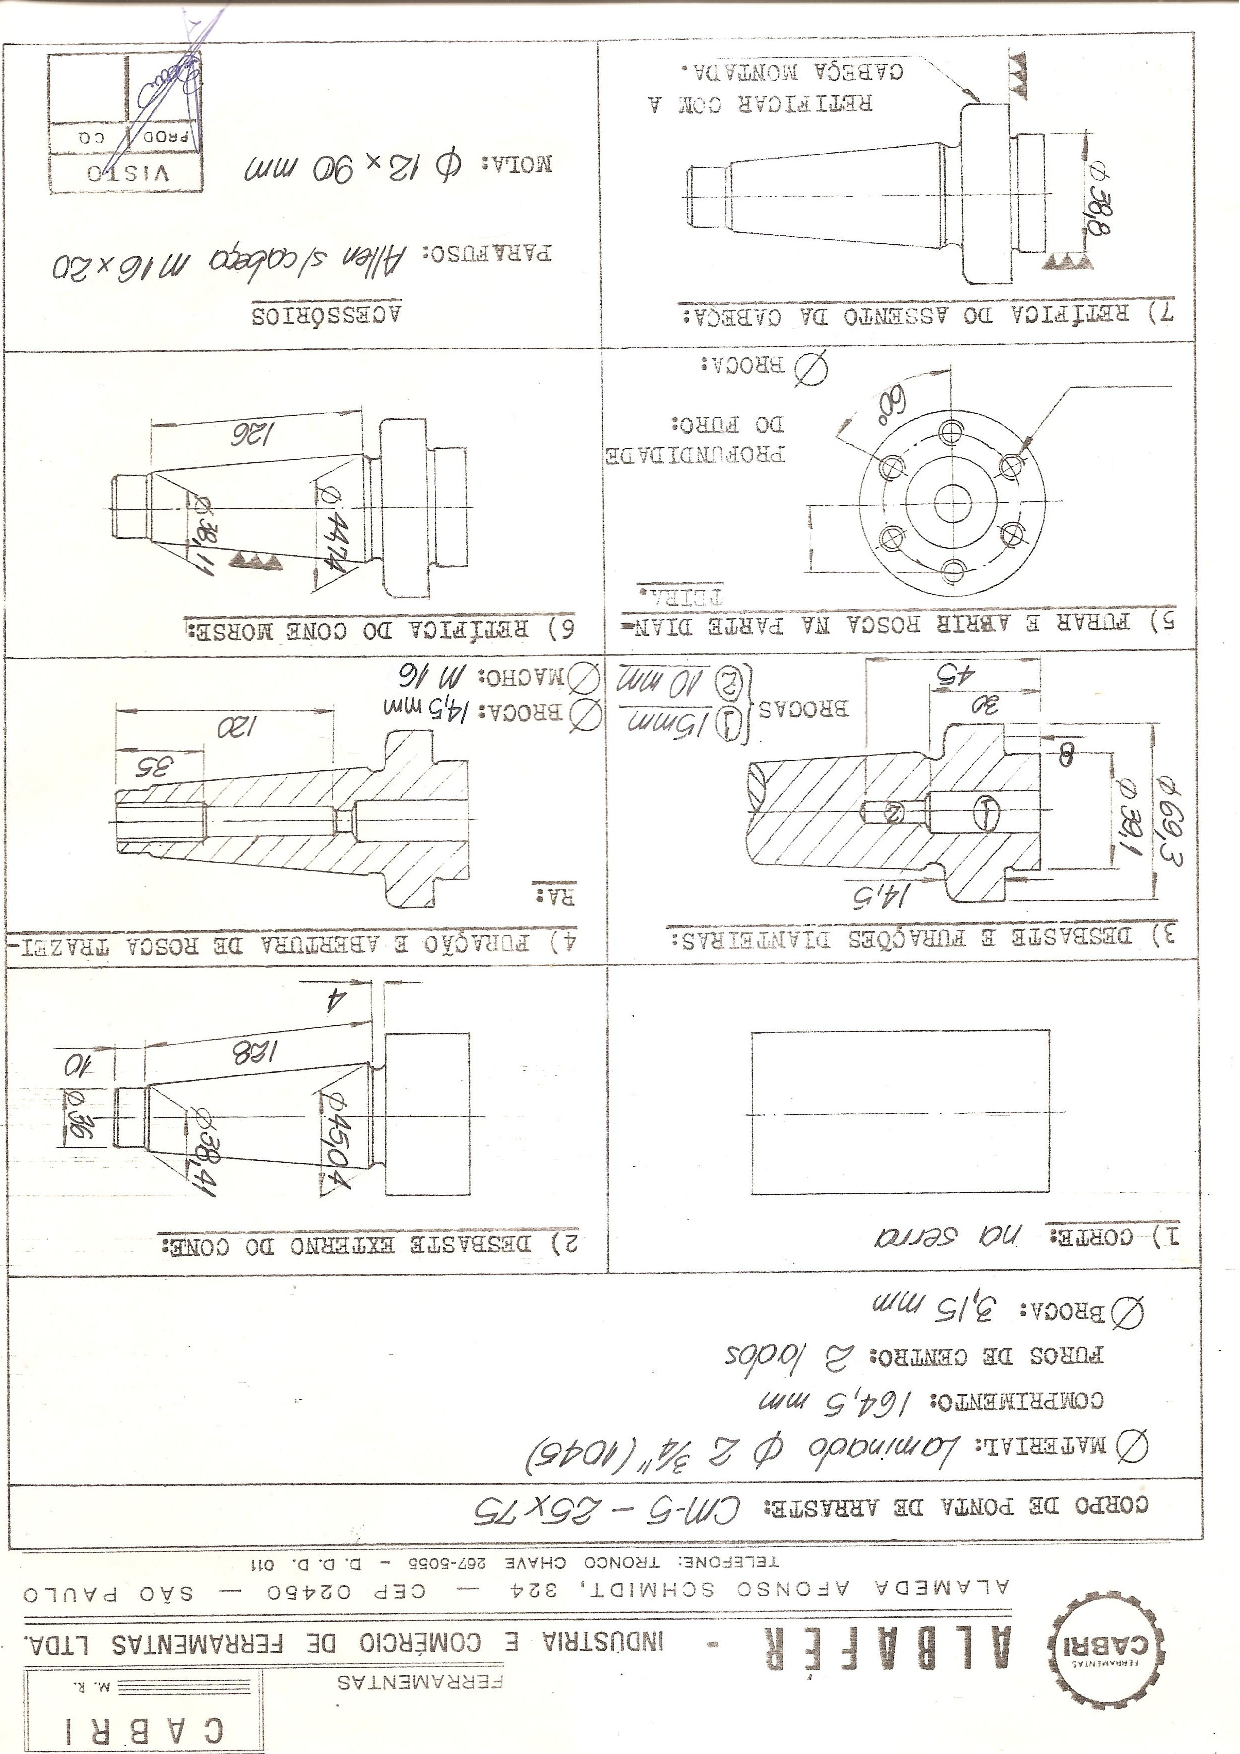 CABRI
M. R.
FERRAMENTAS
FERRAMENTAS
CABRI
ALBAFÉR - INDUSTRIA E COMÉRCIO DE FERRAMENTAS LTDA.
ALAMEDA AFONSO SCHMIDT, 324 — CEP 02450 — SÃO PAULO
TELEFONE: TRONCO CHAVE 267-5055 - D. D. D. 011
CORPO DE PONTA DE ARRASTE: CM-5 - 25x75
Ø MATERIAL: Laminado Ø 2 3/4" (1045)
COMPRIMENTO: 164,5 mm
FUROS DE CENTRO: 2 lados
Ø BROCA: 3,15 mm
1) CORTE: na serra
2) DESBASTE EXTERNO DO CONE:
Ø 36
Ø 38,41
Ø 45,04
10
128
4
3) DESBASTE E FURAÇÕES DIANTEIRAS:
14,5
Ø 69,3
Ø 39,1
1
2
8
30
45
BROCAS
1 15mm
2 10 mm
4) FURAÇÃO E ABERTURA DE ROSCA TRAZEI-
RA:
35
120
Ø BROCA: 14,5 mm
Ø MACHO: M 16
5) FURAR E ABRIR ROSCA NA PARTE DIAN-
TEIRA.
60°
PROFUNDIDADE
DO FURO:
Ø BROCA:
6) RETÍFICA DO CONE MORSE:
Ø 38,11
Ø 44,74
126
7) RETÍFICA DO ASSENTO DA CABEÇA:
Ø 38,8
RETIFICAR COM A
CABEÇA MONTADA.
ACESSÓRIOS
PARAFUSO: Allen s/cabeça M16x20
MOLA: Ø 12 x 90 mm
VISTO
PROD CQ